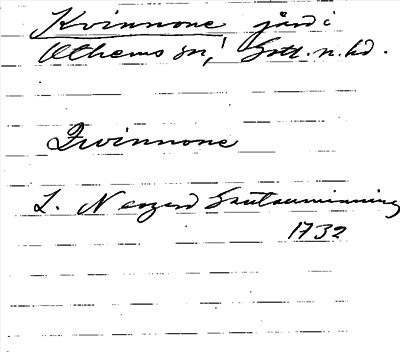 Kvinnone gård i
Othems sn, Gotl. n. hd.
Qwinnone
L. Nargard Gautauminning
1732